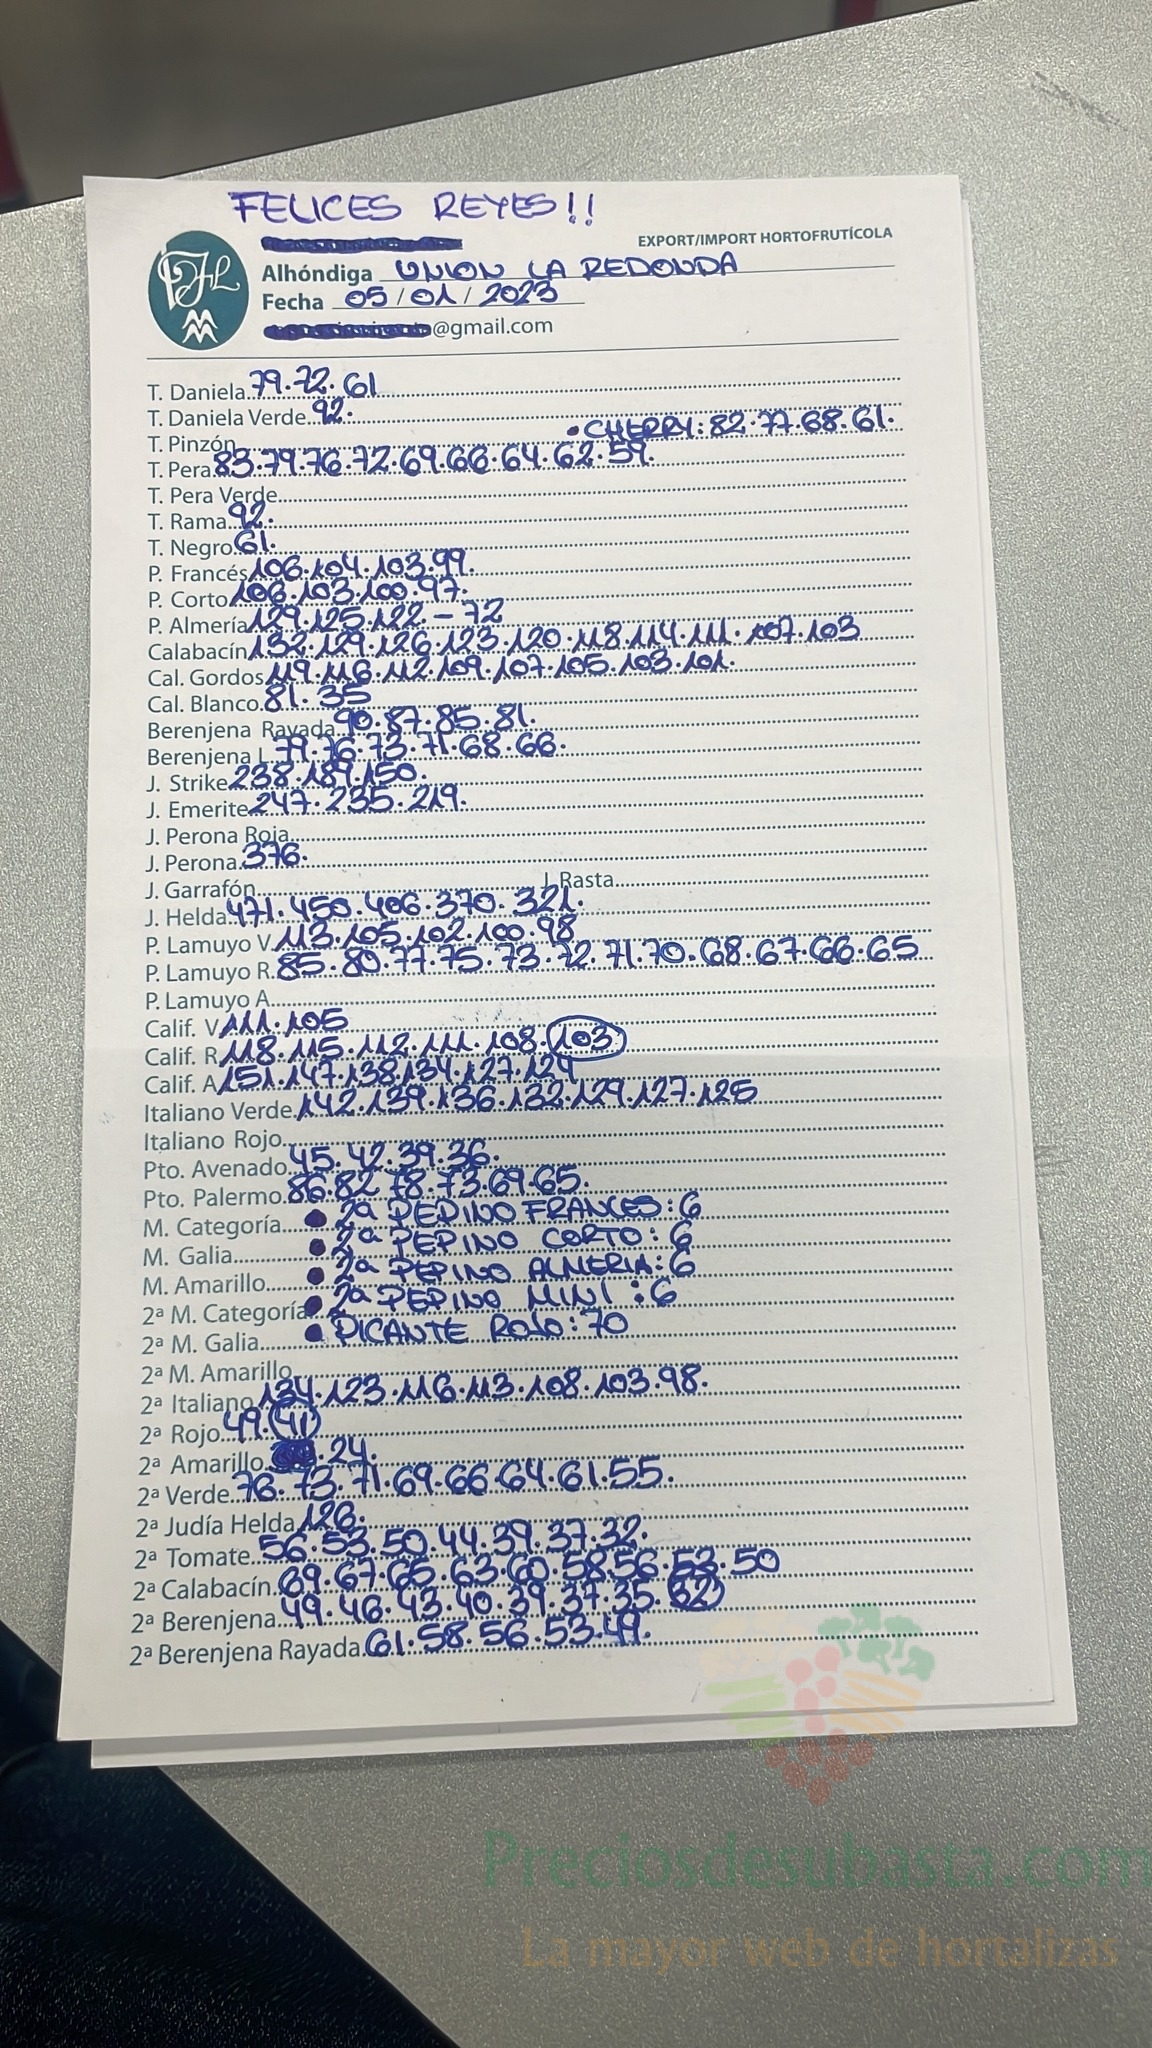 FELICES REYES!!
EXPORT/IMPORT HORTOFRUTÍCOLA
Alhóndiga UNION LA REDONDA
Fecha 05/01/2023
@gmail.com
T. Daniela 79.72.61
T. Daniela Verde 92.
• CHERRY: 82.77.68.61.
T. Pinzón
T. Pera 83.79.76.72.69.66.64.62.59.
T. Pera Verde
T. Rama 92.
T. Negro 61.
P. Francés 106.104.103.99.
P. Corto 106.103.100.97.
P. Almería 129.125.122.-72
Calabacín 132.129.126.123.120.118.114.111.107.103
Cal. Gordos 119.116.112.109.107.105.103.101.
Cal. Blanco 81.35
Berenjena Rayada 90.87.85.81.
Berenjena L 79.76.73.71.68.66.
J. Strike 238.189.150.
J. Emerite 247.235.219.
J. Perona Roja
J. Perona 376.
J. Garrafón J. Rasta
J. Helda 471.450.406.370.321.
P. Lamuyo V. 113.105.102.100.98
P. Lamuyo R. 85.80.77.75.73.72.71.70.68.67.66.65
P. Lamuyo A.
Calif. V 111.105
Calif. R 118.115.112.111.108.103
Calif. A 151.147.138.134.127.124
Italiano Verde 142.139.136.132.129.127.125
Italiano Rojo
Pto. Avenado 45.42.39.36.
Pto. Palermo 86.82.78.73.69.65.
M. Categoría • 2ª PEPINO FRANCES: 6
M. Galia • 2ª PEPINO CORTO: 6
M. Amarillo • 2ª PEPINO ALMERIA: 6
2ª M. Categoría • 2ª PEPINO MINI: 6
2ª M. Galia • PICANTE ROJO: 70
2ª M. Amarillo
2ª Italiano 134.123.116.113.108.103.98.
2ª Rojo 49.41
2ª Amarillo .24.
2ª Verde 76.73.71.69.66.64.61.55.
2ª Judía Helda 126.
2ª Tomate 56.53.50.44.39.37.32.
2ª Calabacín 69.67.65.63.60.58.56.53.50
2ª Berenjena 49.46.43.40.39.37.35.32
2ª Berenjena Rayada 61.58.56.53.49.
Preciosdesubasta.com
La mayor web de hortalizas